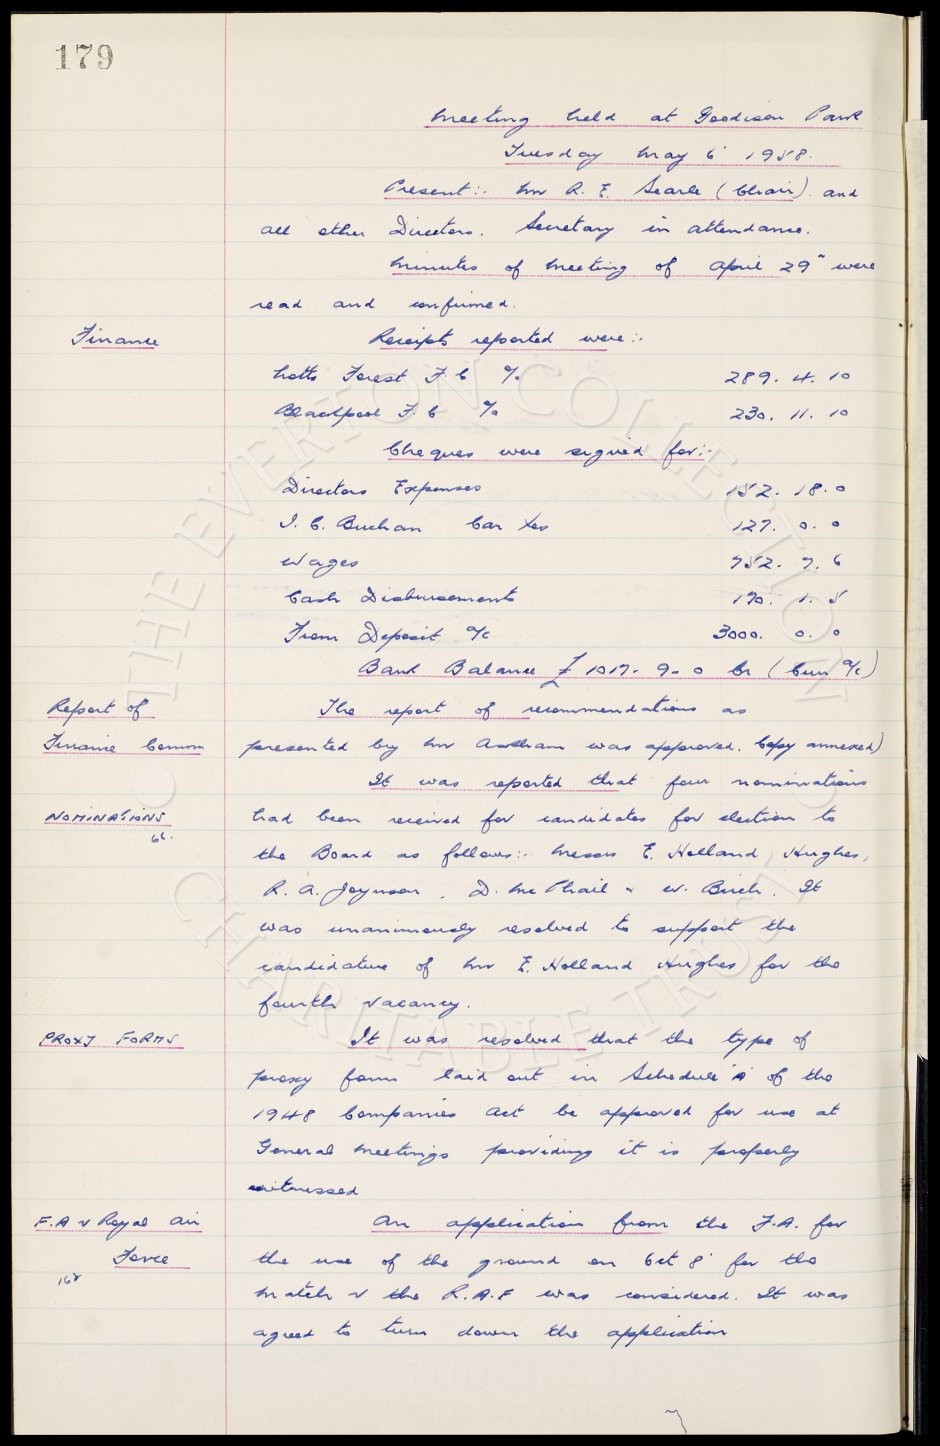 179
Meeting held at Goodison Park
Tuesday May 6' 1958.
Present:. Mr R. E. Searle (Chair). and
all other Directors. Secretary in attendance.
Minutes of Meeting of April 29" were
read and confirmed.
Finance
Receipts reported were:.
Notts Forest F. C %. 289. 4. 10
Blackpool F. C % 230. 11. 10
Cheques were signed for:.
Directors Expenses 152. 18. 0
I. C. Buchan Car 127. 0. 0
Wages 752. 7. 6
Cash Disbursements 170. 1. 5
From Deposit a/c 3000. 0. 0
Bank Balance £ 1017. 9. 0 Cr (Curr a/c)
Report of
Finance Comm
The report of recommendations as
presented by Mr was approved. Copy annexed)
It was reported that four nominations
NOMINATIONS
66.
had been received for candidates for election to
the Board as follows:. Messrs E. Holland Hughes,
R. A. Joynson, D. McPhail & W. Birch. It
was unanimously resolved to support the
candidature of Mr E. Holland Hughes for the
fourth vacancy.
PROXY FORMS
It was resolved that the type of
proxy form laid out in Schedule 'A' of the
1948 Companies Act be approved for use at
General Meetings providing it is properly
witnessed
F.A v Royal Air
Force
162
An application from the F.A. for
the use of the ground on Oct 8' for the
match v the R.A.F was considered. It was
agreed to turn down the application
© THE EVERTON COLLECTION CHARITABLE TRUST